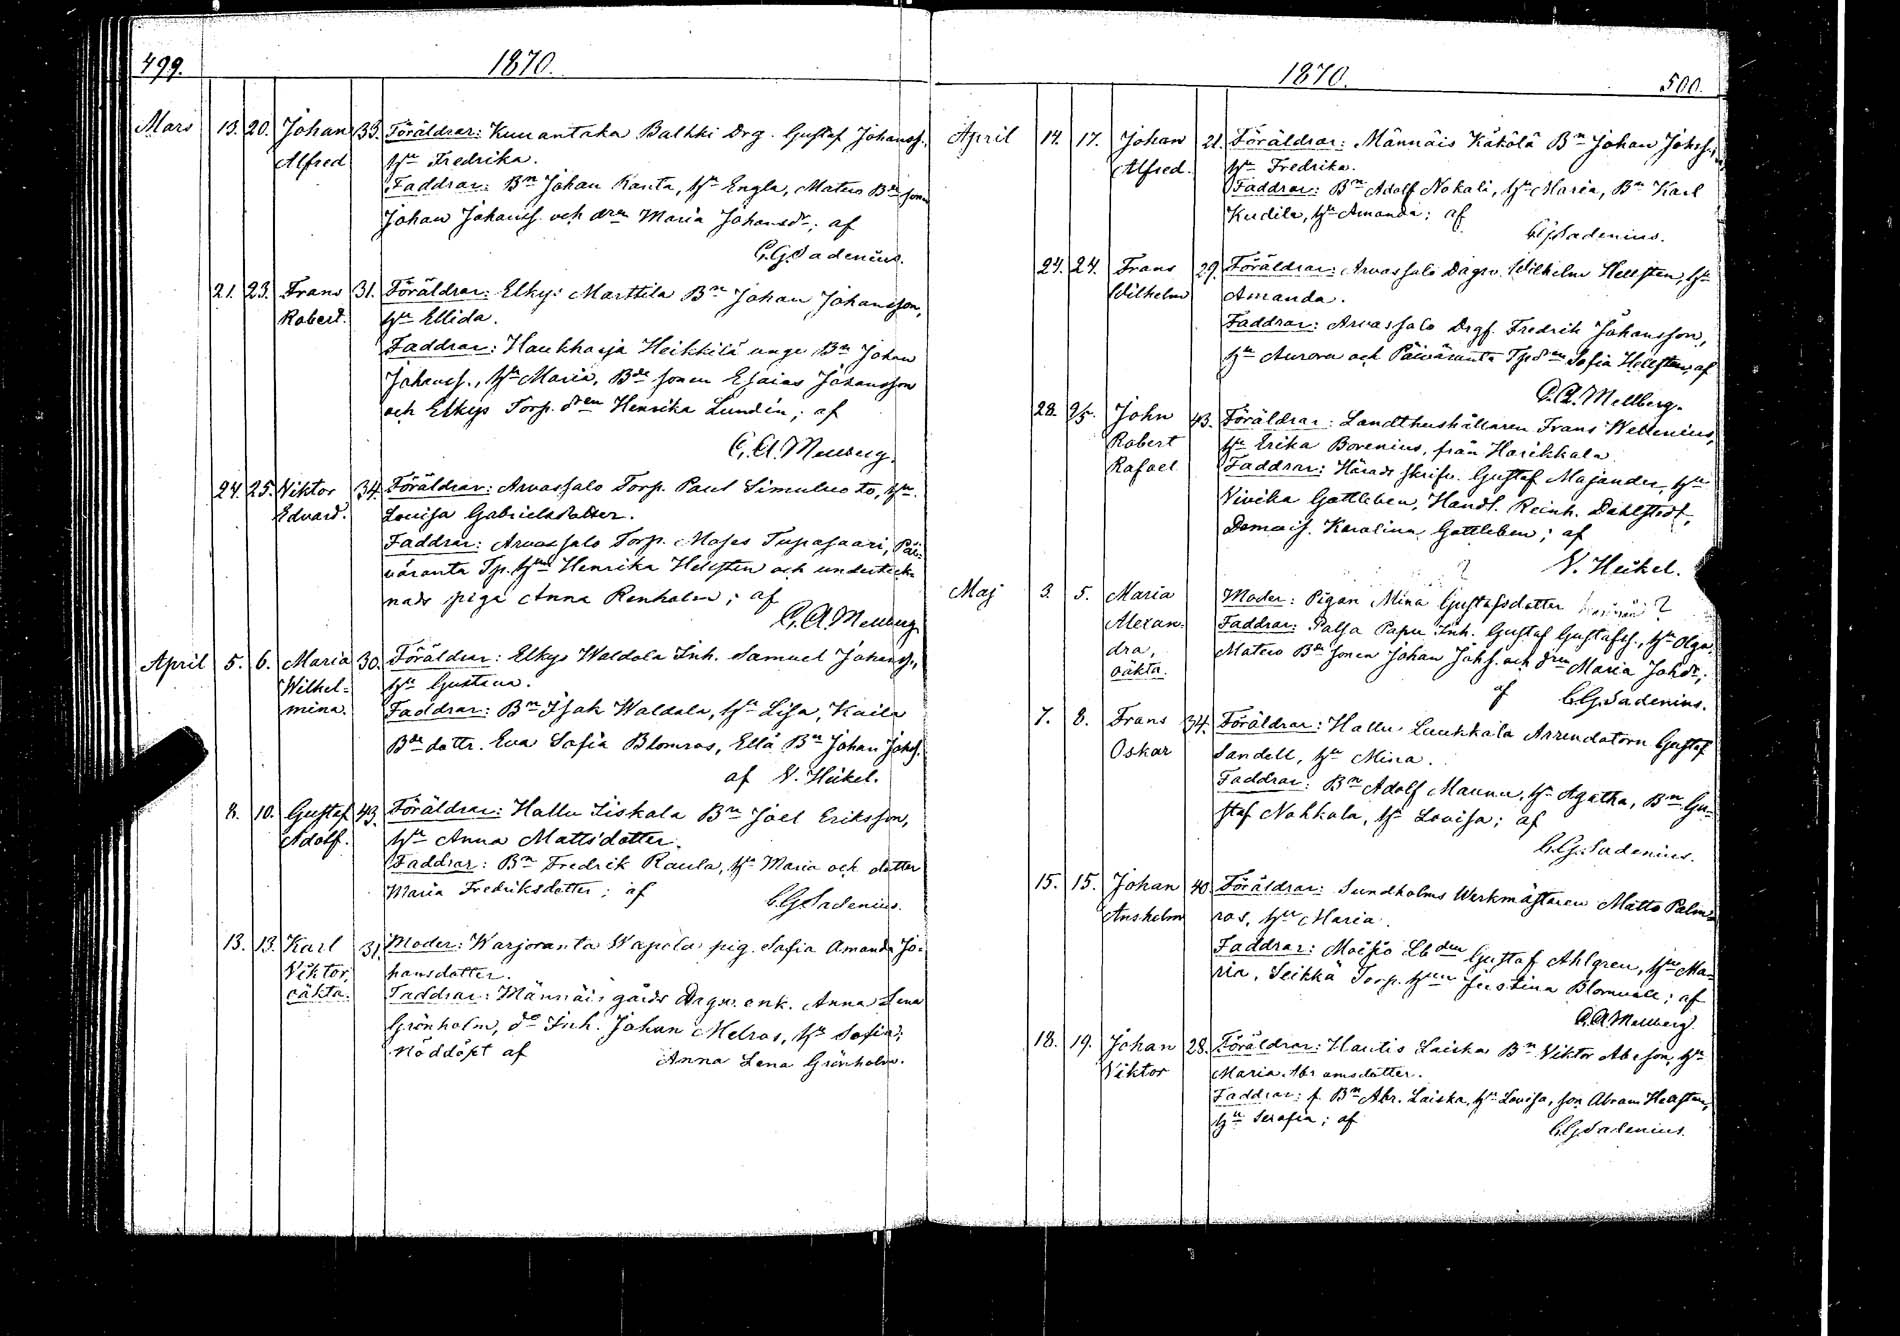 499.
1870.
Mars 13. 20. Johan 33. Föräldrar: Kuuantaka Balkki Drg. Gustaf Johanss.,
Alfred Hu Fredrika.
Faddrar: Bn Johan Ranta, Hu Engla, Mateus Bde sonen
Johan Johanss. och drn Maria Johansdr; af
C.G. Sadenius.
21. 23. Frans 31. Föräldrar: Elkys Marttila Bn Johan Johansson,
Robert. Hu Ellida.
Faddrar: Haukkasja Heikkilä unge Bn Johan
Johanss., Hu Maria, Bde sonen Esaias Johansson
och Elkys Torp. dren Henrika Lundén; af
C.A. Mellberg.
24. 25. Viktor 34. Föräldrar: Arvassalo Torp. Paul Simulus to, Hu
Edvard. Lovisa Gabrielsdotter.
Faddrar: Arvassalo Torp. Moses Tupasaari, Päi-
väranta Tp. Hun Henrika Hellsten och underteck-
nads piga Anna Renholm; af
C.A. Mellberg
April 5. 6. Maria 30. Föräldrar: Elkys Waldala Inh. Samuel Johanss.,
Wilhel- Hu Gustava.
mina. Faddrar: Bn Isak Waldala, Hu Lisa, Kaila
Bde dottr. Eva Sofia Blomros, Ellä Bn Johan Johss.
af V. Heikel.
8. 10. Gustaf 43. Föräldrar: Hallu Iiskala Bn Joel Eriksson,
Adolf. Hu Anna Mattsdotter.
Faddrar: Bn Fredrik Raula, Hu Maria och dotter
Maria Fredriksdotter; af C.G. Sadenius.
13. 13. Karl 31. Moder: Karjoranta Wapola pig. Sofia Amanda Jo-
Viktor, hansdotter.
oäkta. Faddrar: Männäis gårds Dagsv. enk. Anna Lena
Grönholm, do Inh. Johan Melros, Hu Sofia;
Nöddöpt af Anna Lena Grönholm.
1870.
500.
April 14. 17. Johan 21. Föräldrar: Männäis Käkölä Bn Johan Johss.,
Alfred. Hu Fredrika.
Faddrar: Bn Adolf Nokali, Hu Maria, Bn Karl
Kudila, Hu Amanda; af
C.G. Sadenius.
24. 24. Frans 29. Föräldrar: Arvassalo Dagsv. Wilhelm Hellsten, Hu
Wilhelm Amanda.
Faddrar: Arvassalo Drgf. Fredrik Johansson,
Hu Aurora och Päiväranta Tpdren Sofia Hellsten, af
C.A. Mellberg.
28. 9/5. John 43. Föräldrar: Landthushållaren Frans Wellenius,
Robert Hu Erika Borenius, från Harikkala.
Rafael. Faddrar: Härads skrifv. Gustaf Majander, Hu
Vivika Gottleben, Handl. Reinh. Dahlstedt,
Demois. Karolina Gottleben; af
V. Heikel.
Maj 3. 5. Maria Moder: Pigan Mina Gustafsdotter ?
Alexan- Faddrar: Palsa Papu Inh. Gustaf Gustafss., Hu Olga,
dra, Mateus Bde sonen Johan Johs. och drn Maria Johdr;
oäkta. af C.G. Sadenius.
7. 8. Frans 34. Föräldrar: Hallu Luukkala Arrendatorn Gustaf
Oskar Sandell, Hu Mina.
Faddrar: Bn Adolf Maunu, Hu Agatha, Bn Gu-
staf Nohkola, Hu Lovisa; af
C.G. Sadenius.
15. 15. Johan 40. Föräldrar: Sundholms Werkmästaren Matts Palm-
Anshelm ros, Hu Maria.
Faddrar: Moisio Lbden Gustaf Ahlgren, Hu Ma-
ria, Seikkä Torp. Hun Justina Blomvall; af
C.A. Mellberg.
18. 19. Johan 28. Föräldrar: Hautis Laiska Bn Viktor Abrson, Hu
Viktor Maria Abramsdotter.
Faddrar: f. Bn Abr. Laiska, Hu Lovisa, son Abram Hellsten,
Hu Serafia; af C.G. Sadenius.